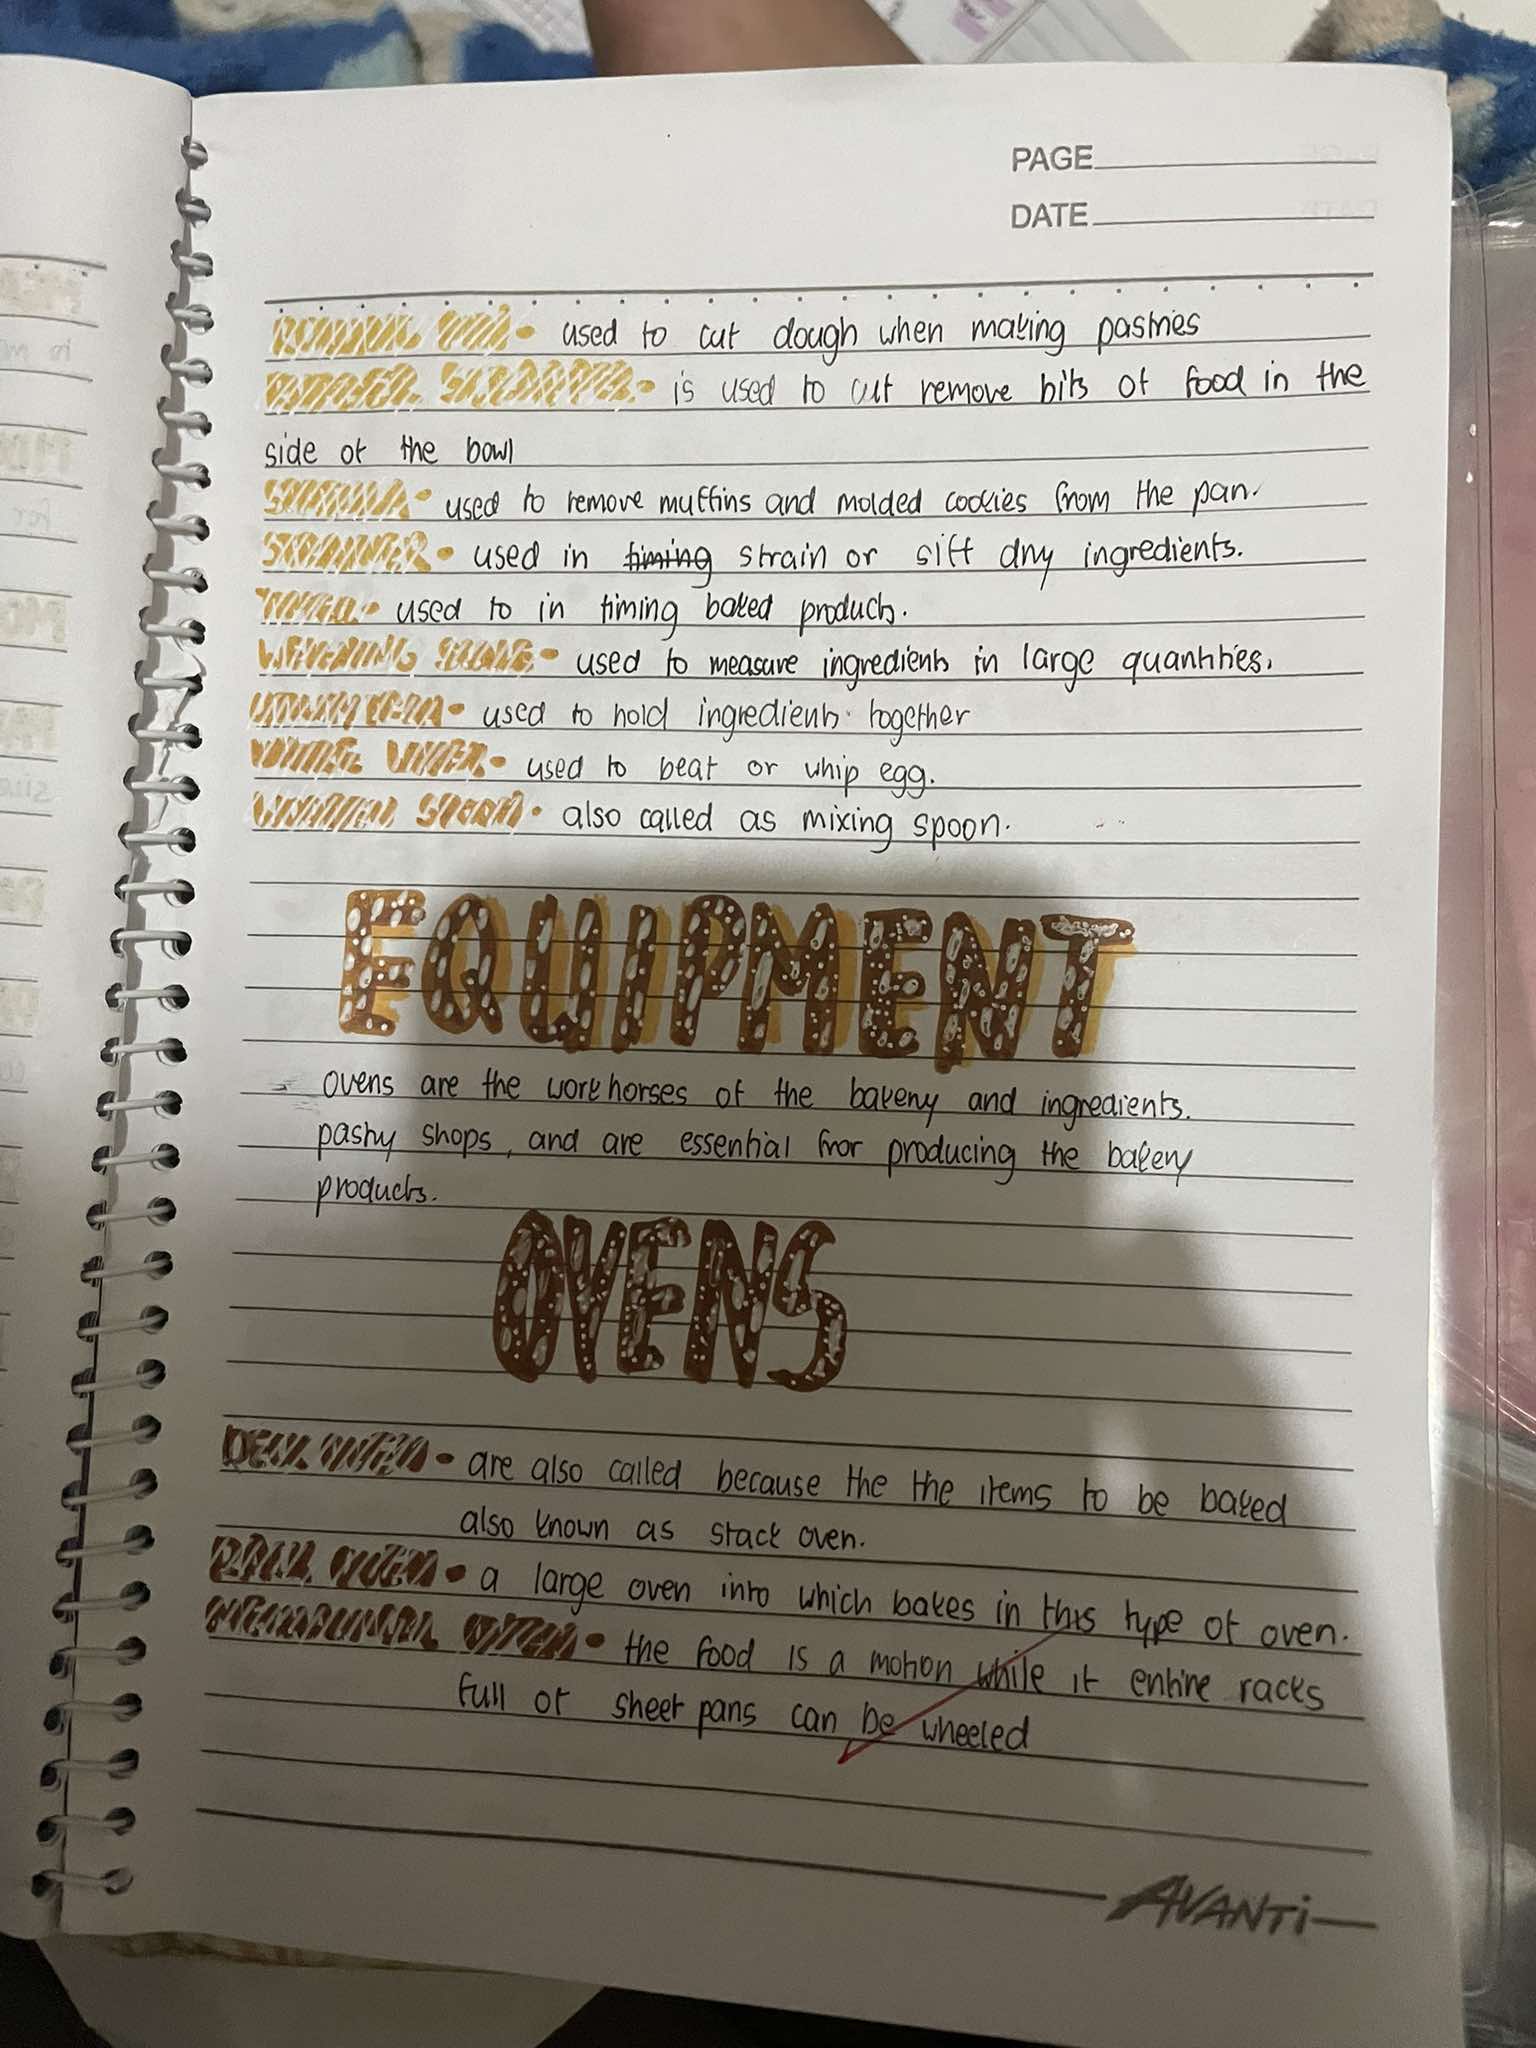 PAGE
DATE
used to cut dough when making pastries
RUBBER SCRAPPER - is used to cut remove bits of food in the
side of the bowl
SPATULA - used to remove muffins and molded cookies from the pan.
STRAINER - used in timing strain or sift dry ingredients.
TIMER - used to in timing baked products.
WEIGHING SCALE - used to measure ingredients in large quantities.
used to hold ingredients together
WIRE WHISK - used to beat or whip egg.
WOODEN SPOON - also called as mixing spoon.
EQUIPMENT
ovens are the workhorses of the bakery and ingredients.
pastry shops, and are essential for producing the bakery
products.
OVENS
DECK OVEN - are also called because the the items to be baked
also known as stack oven.
RACK OVEN - a large oven into which bakes in this type of oven.
MECHANICAL OVEN - the food is a motion while it entire racks
full of sheet pans can be wheeled
AVANTi